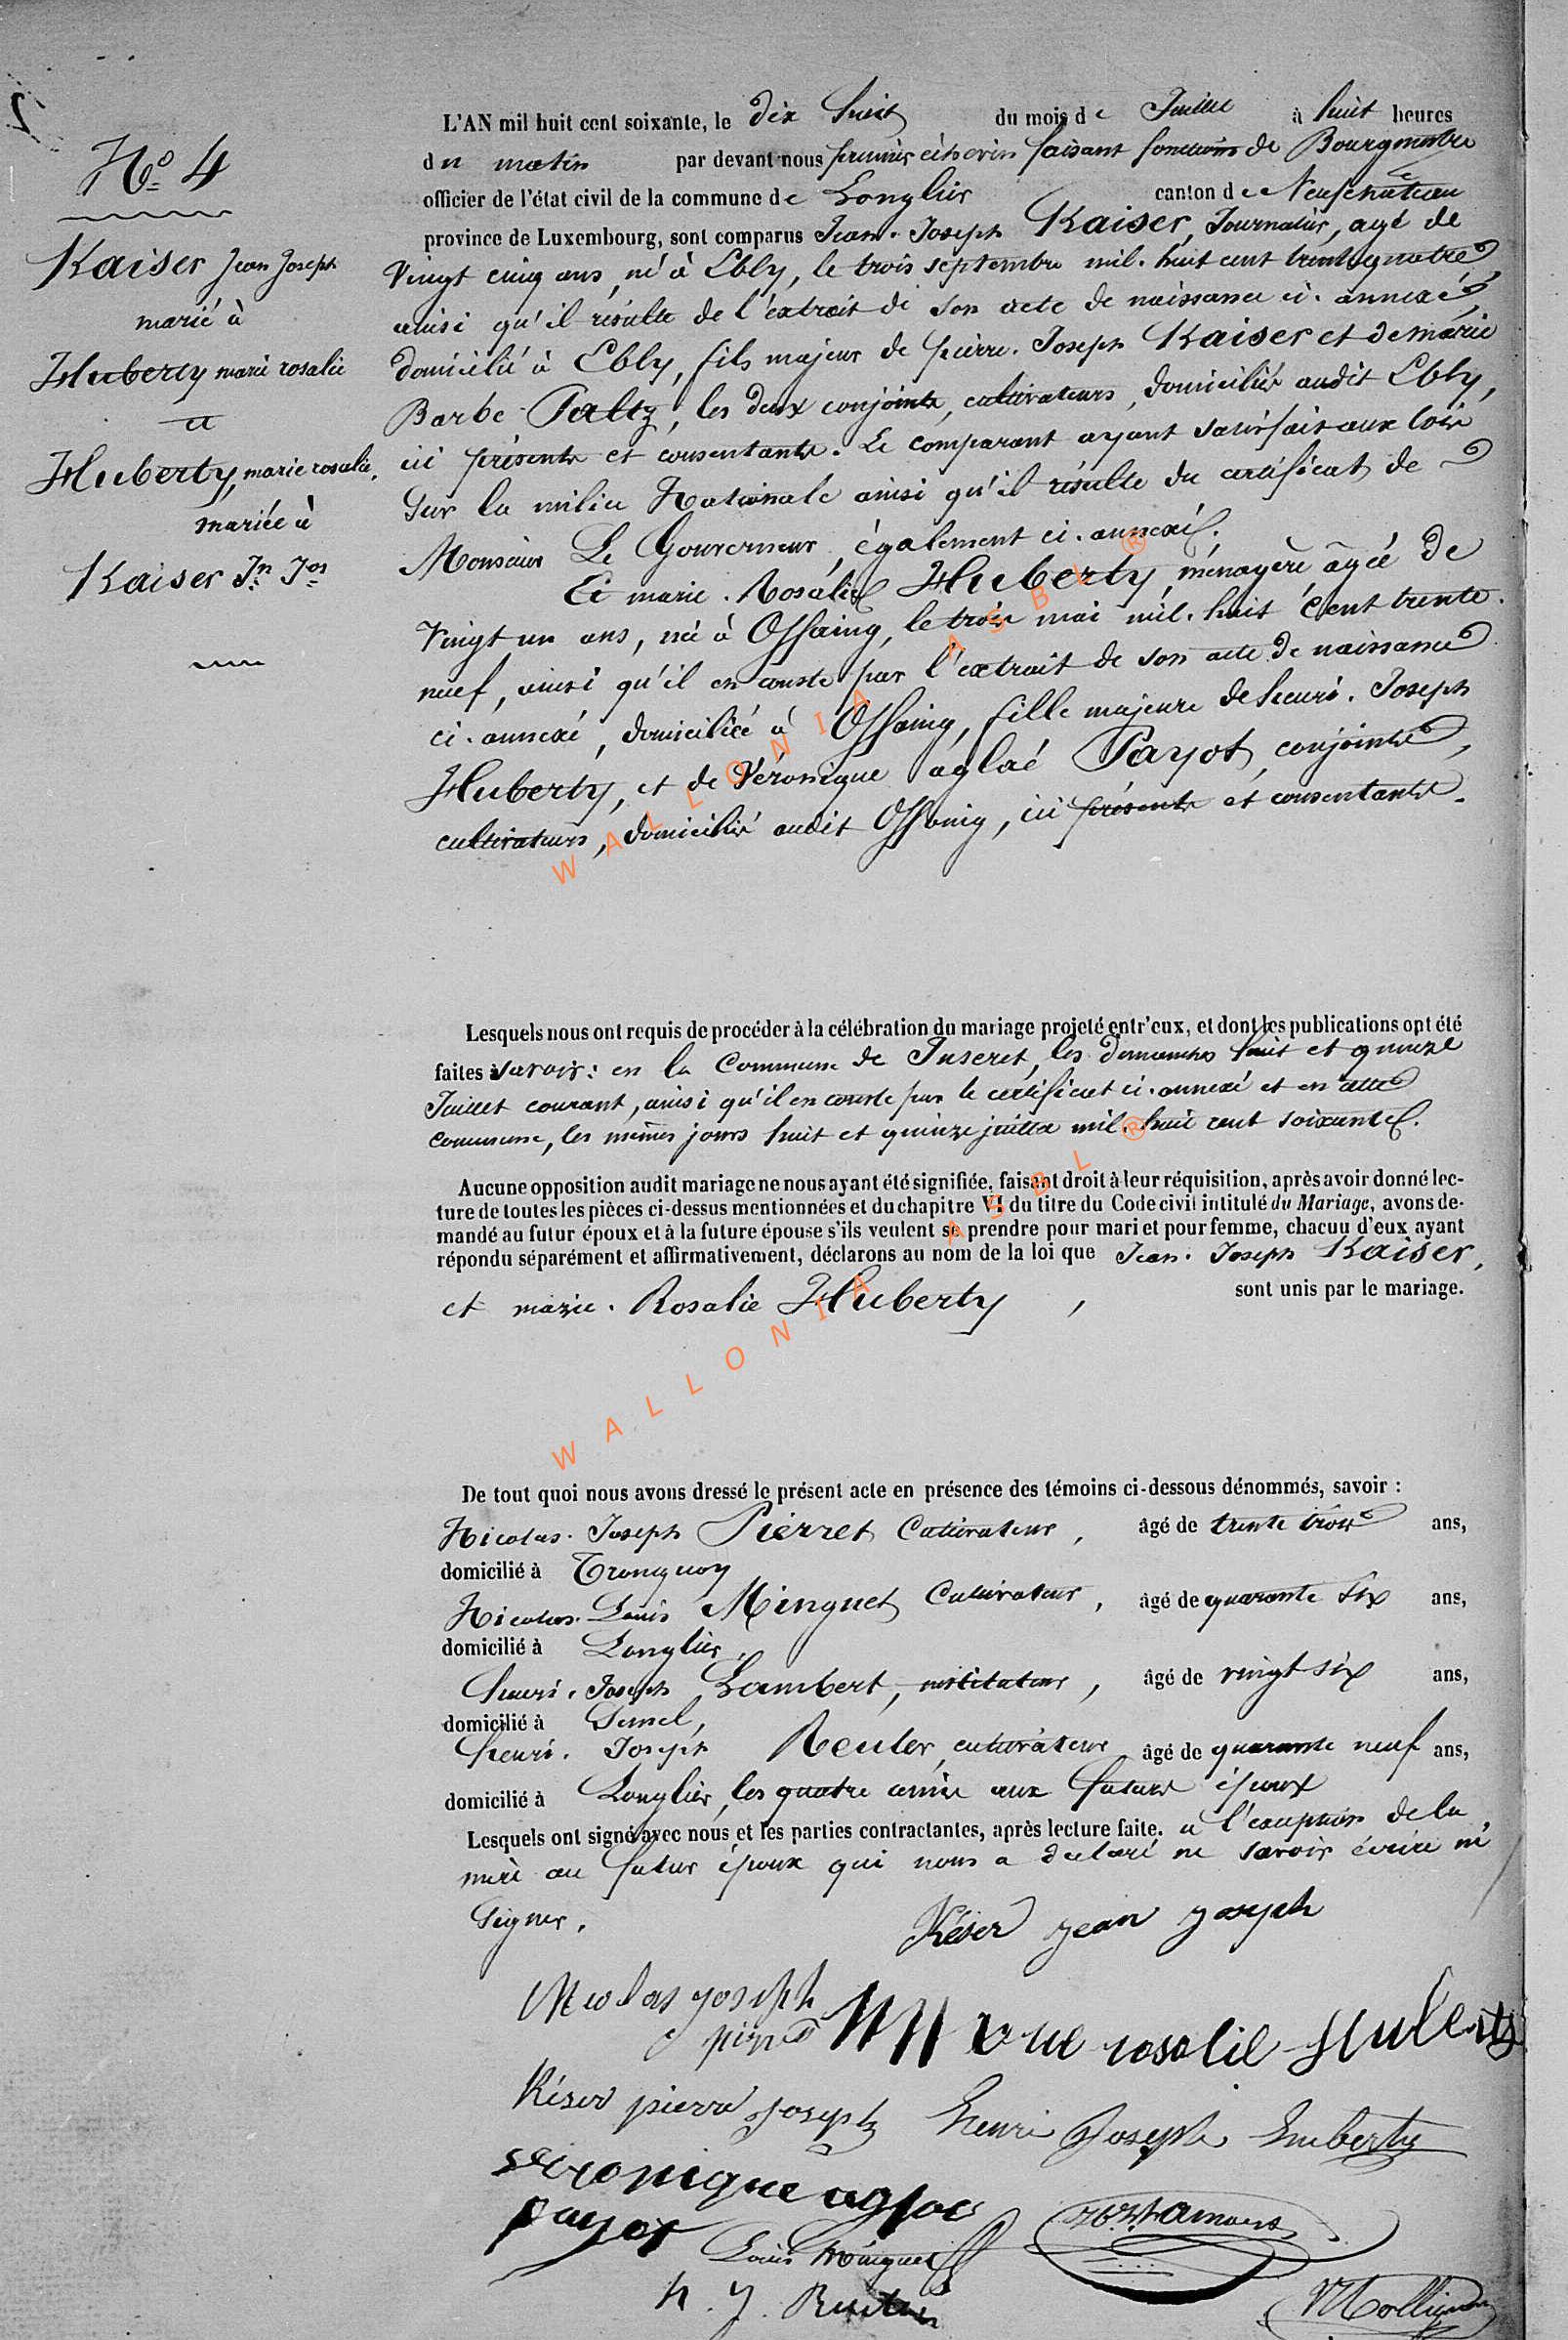 N° 4
Kaiser Jean Joseph
marié à
Huberty marie rosalie
et
Huberty, marie rosalie,
mariée à
Kaiser Jn Jos
L'AN mil huit cent soixante, le dix huit du mois de Juillet à huit heures
du matin par devant nous premier échevin faisant fonctions de Bourgmestre
officier de l'état civil de la commune de Longlier canton de Neufchâteau
province de Luxembourg, sont comparus Jean-Joseph Kaiser, Journalier, agé de
Vingt cinq ans, né à Ebly, le trois septembre mil-huit cent trente quatre,
ainsi qu'il résulte de l'extrait de son acte de naissance ci-annexé,
domicilié à Ebly, fils majeur de pierre-Joseph Kaiser et de marie
Barbe Paltz, les deux conjoints, cultivateurs, domiciliés audit Ebly,
ici présents et consentants. Le comparant ayant satisfait aux lois
sur la milice Nationale ainsi qu'il résulte du certificat de
Monsieur Le Gouverneur, également ci-annexé.
Et marie-Rosalie Huberty, ménagère âgée de
Vingt un ans, née à Offaing, le trois mai mil-huit Cent trente
neuf, ainsi qu'il en conste par l'extrait de son acte de naissance
ci-annexé, domiciliée à Offaing, fille majeure de henri-Joseph
Huberty, et de Véronique aglaé Payot, conjoints,
cultivateurs, domiciliés audit Offaing, ici présents et consentants.
Lesquels nous ont requis de procéder à la célébration du mariage projeté entr'eux, et dont les publications ont été
faites savoir: en la Commune de Juseret, les dimanches huit et quinze
Juillet courant, ainsi qu'il en conste par le certificat ci-annexé et en cette
commune, les mêmes jours huit et quinze juillet mil-huit cent soixante.
Aucune opposition audit mariage ne nous ayant été signifiée, faisant droit à leur réquisition, après avoir donné lec-
ture de toutes les pièces ci-dessus mentionnées et du chapitre VI du titre du Code civil intitulé du Mariage, avons de-
mandé au futur époux et à la future épouse s'ils veulent se prendre pour mari et pour femme, chacun d'eux ayant
répondu séparément et affirmativement, déclarons au nom de la loi que Jean-Joseph Kaiser,
et marie-Rosalie Huberty, sont unis par le mariage.
De tout quoi nous avons dressé le présent acte en présence des témoins ci-dessous dénommés, savoir :
Nicolas-Joseph Pierret Cultivateur, âgé de trente trois ans,
domicilié à Tronquoy
Nicolas-Louis Minguet Cultivateur, âgé de quarante six ans,
domicilié à Longlier,
henri-Joseph Lambert, instituteur, âgé de vingt six ans,
domicilié à Semel,
henri-Joseph Reuter, cultivateur âgé de quarante neuf ans,
domicilié à Longlier, les quatre amis aux futurs époux
Lesquels ont signé avec nous et les parties contractantes, après lecture faite. à l'exception de la
mère au futur époux qui nous a déclaré ne savoir écrire ni
Signer.
Késer jean joseph
Nicolas joseph
marie rosalie Huberty
Késer pierre joseph
henri Joseph huberty
véronique aglae
payot
Louis Minguet
h. j. Reuter
WALLONIA ASBL ®
WALLONIA ASBL ®